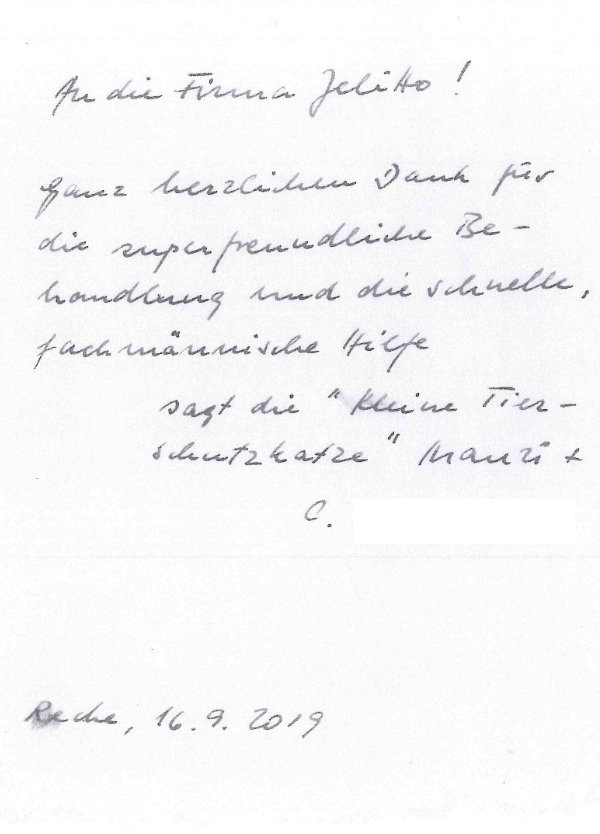 An die Firma Jelitto!
ganz herzlichen Dank für
die superfreundliche Be-
handlung und die schnelle,
fachmännische Hilfe
sagt die "kleine Tier-
schutzkatze" Mauzi +
C.
16.9.2019